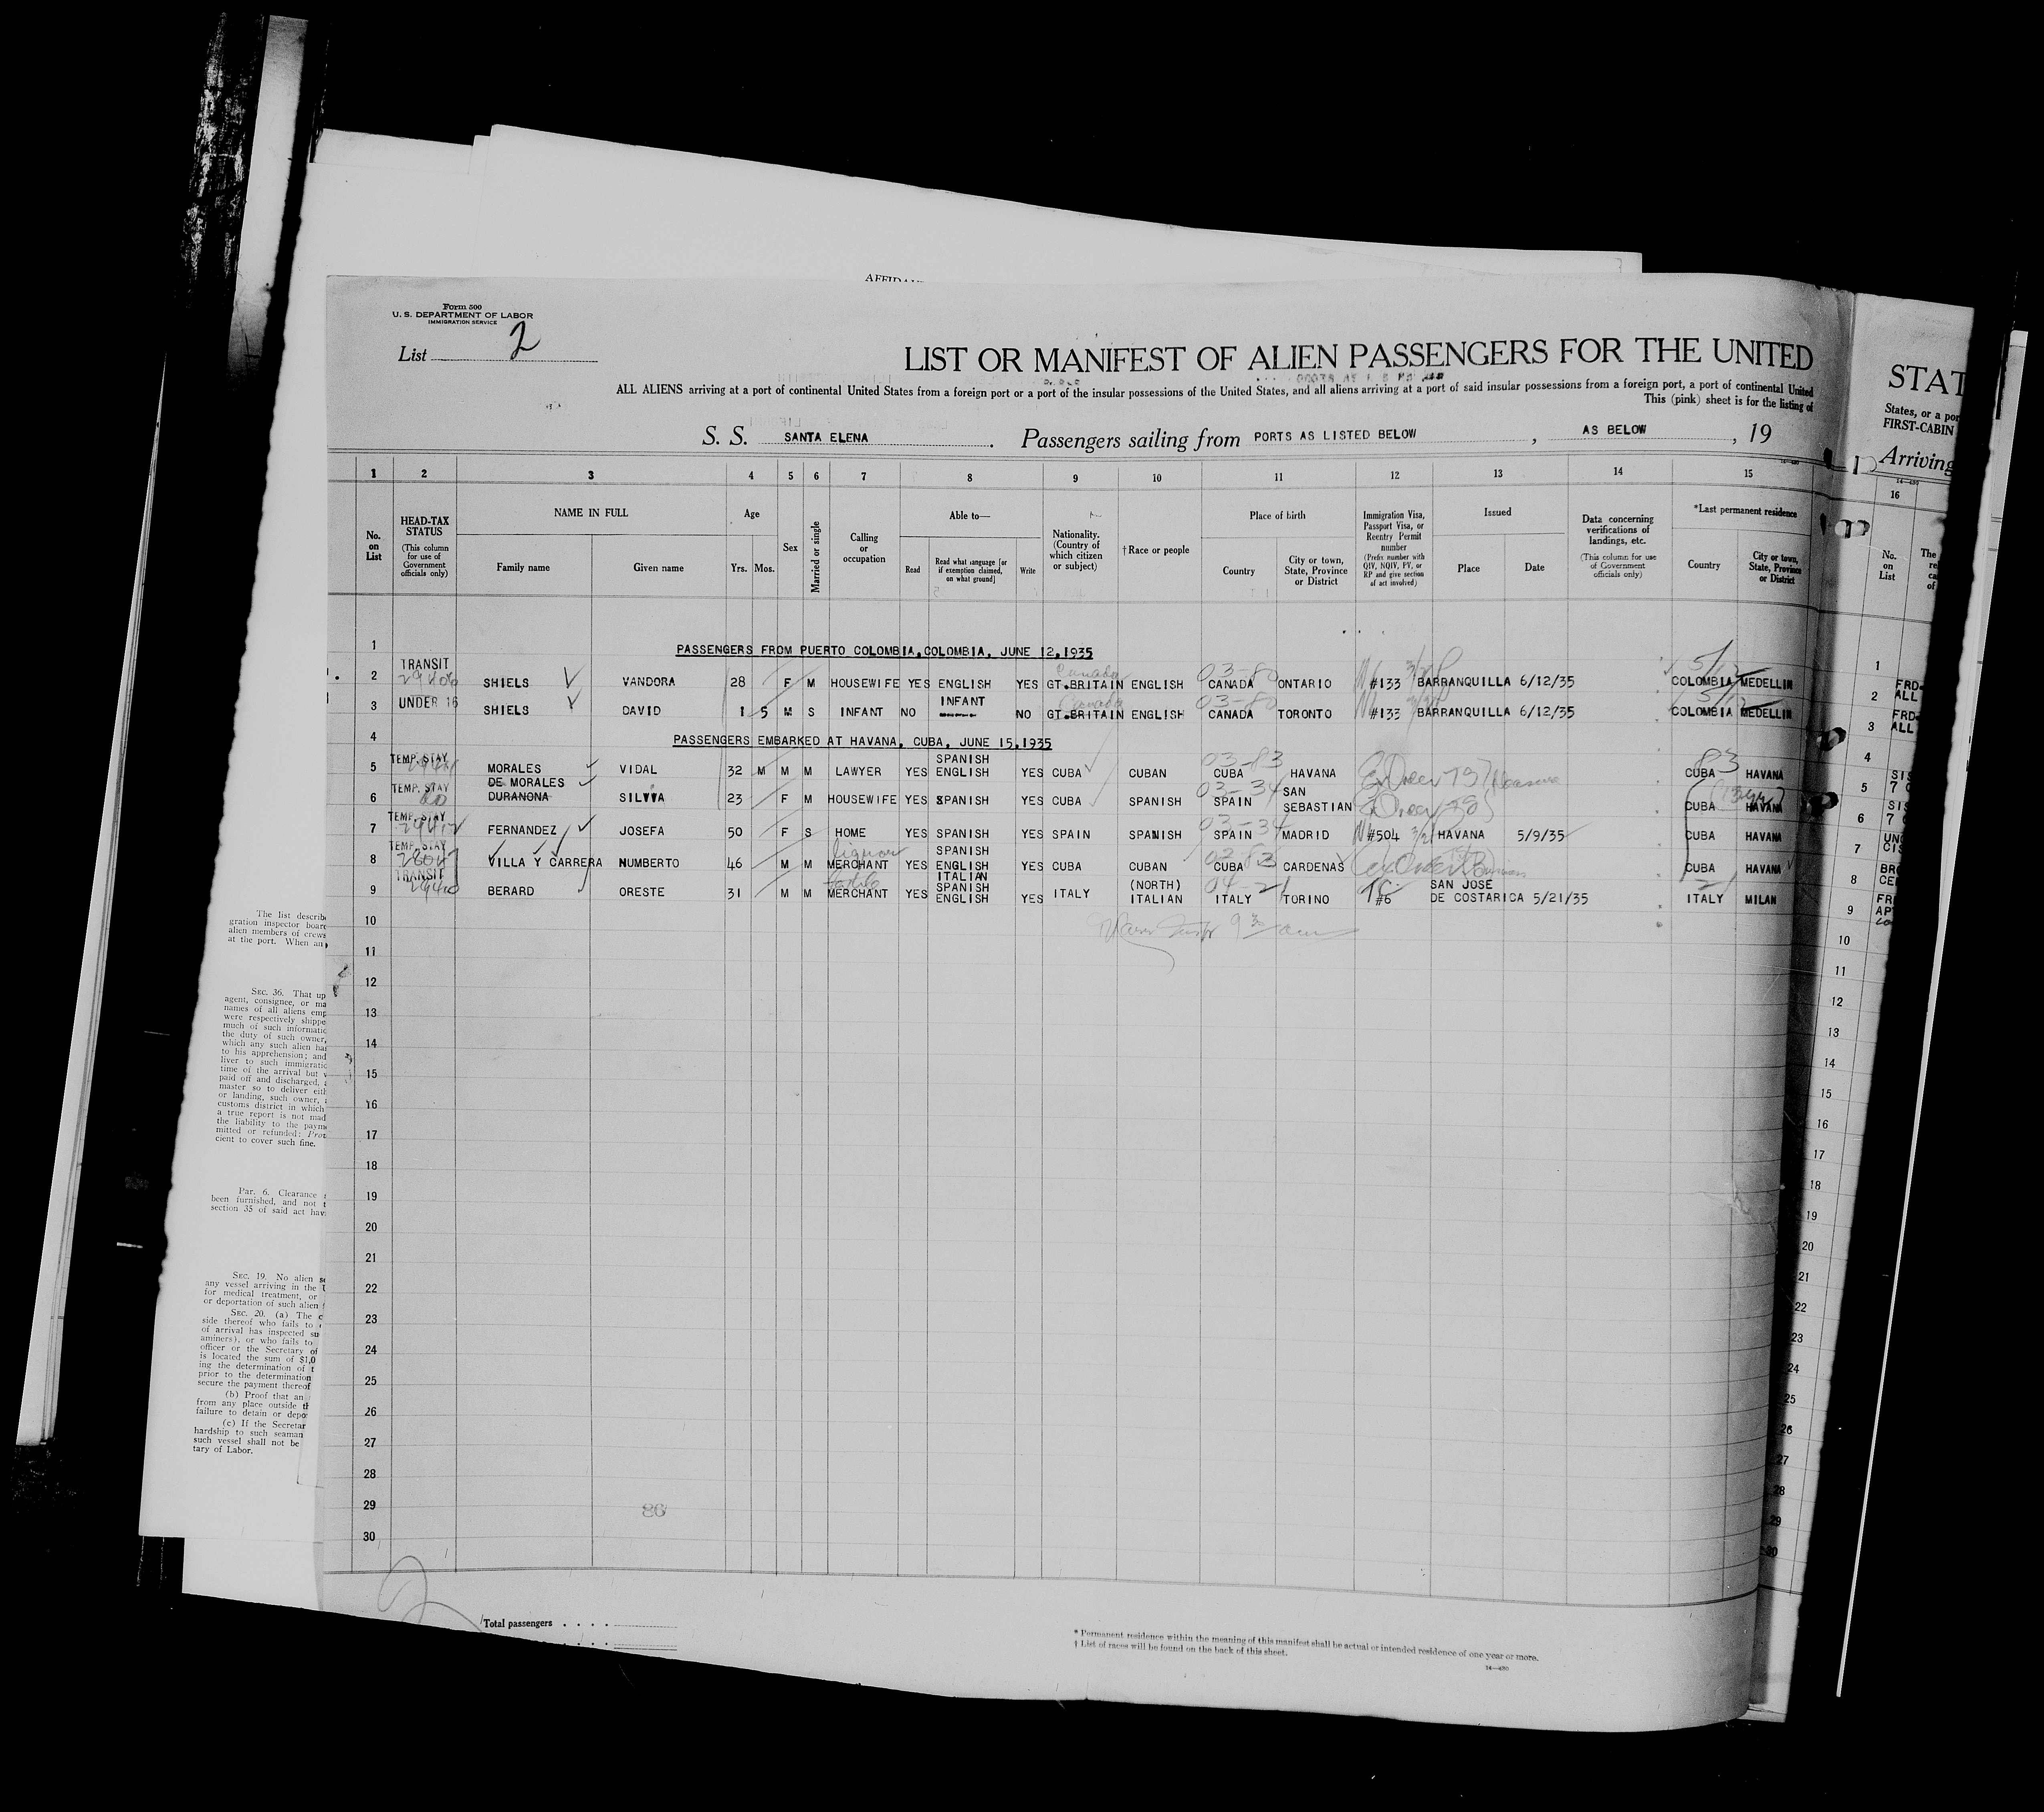 AFFIDA
Form 500
U. S. DEPARTMENT OF LABOR
IMMIGRATION SERVICE
List 2
LIST OR MANIFEST OF ALIEN PASSENGERS FOR THE UNITED
ALL ALIENS arriving at a port of continental United States from a foreign port or a port of the insular possessions of the United States, and all aliens arriving at a port of said insular possessions from a foreign port, a port of continental United
This (pink) sheet is for the listing of
S. S. SANTA ELENA. Passengers sailing from PORTS AS LISTED BELOW, AS BELOW, 19
1 2 3 4 5 6 7 8 9 10 11 12 13 14 15
No. on List
HEAD-TAX STATUS (This column for use of Government officials only)
NAME IN FULL
Family name Given name
Age
Yrs. Mos.
Sex
Married or single
Calling or occupation
Able to—
Read Read what language [or if exemption claimed, on what ground] Write
Nationality. (Country of which citizen or subject)
†Race or people
Place of birth
Country City or town, State, Province or District
Immigration Visa, Passport Visa, or Reentry Permit number (Prefix number with QIV, NQIV, PV, or RP and give section of act involved)
Issued
Place Date
Data concerning verifications of landings, etc. (This column for use of Government officials only)
*Last permanent residence
Country City or town, State, Province or District
1 PASSENGERS FROM PUERTO COLOMBIA, COLOMBIA, JUNE 12, 1935
TRANSIT Canada 03-80
2 SHIELS VANDORA 28 F M HOUSEWIFE YES ENGLISH YES GT.BRITAIN ENGLISH CANADA ONTARIO #133 BARRANQUILLA 6/12/35 COLOMBIA MEDELLIN
UNDER 16 INFANT Canada 03-80
3 SHIELS DAVID 1 5 M S INFANT NO NO GT.BRITAIN ENGLISH CANADA TORONTO #133 BARRANQUILLA 6/12/35 COLOMBIA MEDELLIN
4 PASSENGERS EMBARKED AT HAVANA, CUBA, JUNE 15,1935
TEMP. STAY SPANISH 03-83 83
5 MORALES VIDAL 32 M M M LAWYER YES ENGLISH YES CUBA CUBAN CUBA HAVANA CUBA HAVANA
TEMP. STAY DE MORALES 03-34 SAN
6 DURANONA SILVIA 23 F M HOUSEWIFE YES SPANISH YES CUBA SPANISH SPAIN SEBASTIAN CUBA HAVANA
TEMP. STAY 03-34
7 FERNANDEZ JOSEFA 50 F S HOME YES SPANISH YES SPAIN SPANISH SPAIN MADRID #504 HAVANA 5/9/35 CUBA HAVANA
TEMP. STAY liquor SPANISH
8 VILLA Y CARRERA HUMBERTO 46 M M MERCHANT YES ENGLISH YES CUBA CUBAN CUBA CARDENAS CUBA HAVANA
TRANSIT textile ITALIAN SPANISH (NORTH) SAN JOSE
9 BERARD ORESTE 31 M M MERCHANT YES ENGLISH YES ITALY ITALIAN ITALY TORINO #6 DE COSTARICA 5/21/35 ITALY MILAN
10
11
12
13
14
15
16
17
18
19
20
21
22
23
24
25
26
27
28
29
30
86
Total passengers
* Permanent residence within the meaning of this manifest shall be actual or intended residence of one year or more.
† List of races will be found on the back of this sheet.
14—480
STAT
States, or a por
FIRST-CABIN
Arriving
16
No. on List
The
1
2 FRD
ALL
3 FRD
ALL
4
5 SIS
7
6 SI
7
7 UN
CI
8 BR
CE
9 FR
AP
10
11
12
13
14
15
16
17
18
19
20
21
22
23
24
25
26
27
28
29
30
The list describ
gration inspector board
alien members of crews
at the port. When an
SEC. 36. That up
agent, consignee, or ma
names of all aliens emp
were respectively shippe
much of such informatio
the duty of such owner,
which any such alien ha
to his apprehension; and
liver to such immigratio
time of the arrival but
paid off and discharged,
master so to deliver eit
or landing, such owner,
customs district in which
a true report is not mad
the liability to the paym
mitted or refunded: Prov
cient to cover such fine.
Par. 6. Clearance
been furnished, and not
section 35 of said act hav
SEC. 19. No alien se
any vessel arriving in the
for medical treatment, or
or deportation of such alien
SEC. 20. (a) The
side thereof who fails to
of arrival has inspected su
aminers), or who fails to
officer or the Secretary of
is located the sum of $1,0
ing the determination of t
prior to the determination
secure the payment thereof
(b) Proof that an
from any place outside th
failure to detain or depo
(c) If the Secretar
hardship to such seaman
such vessel shall not be
tary of Labor.